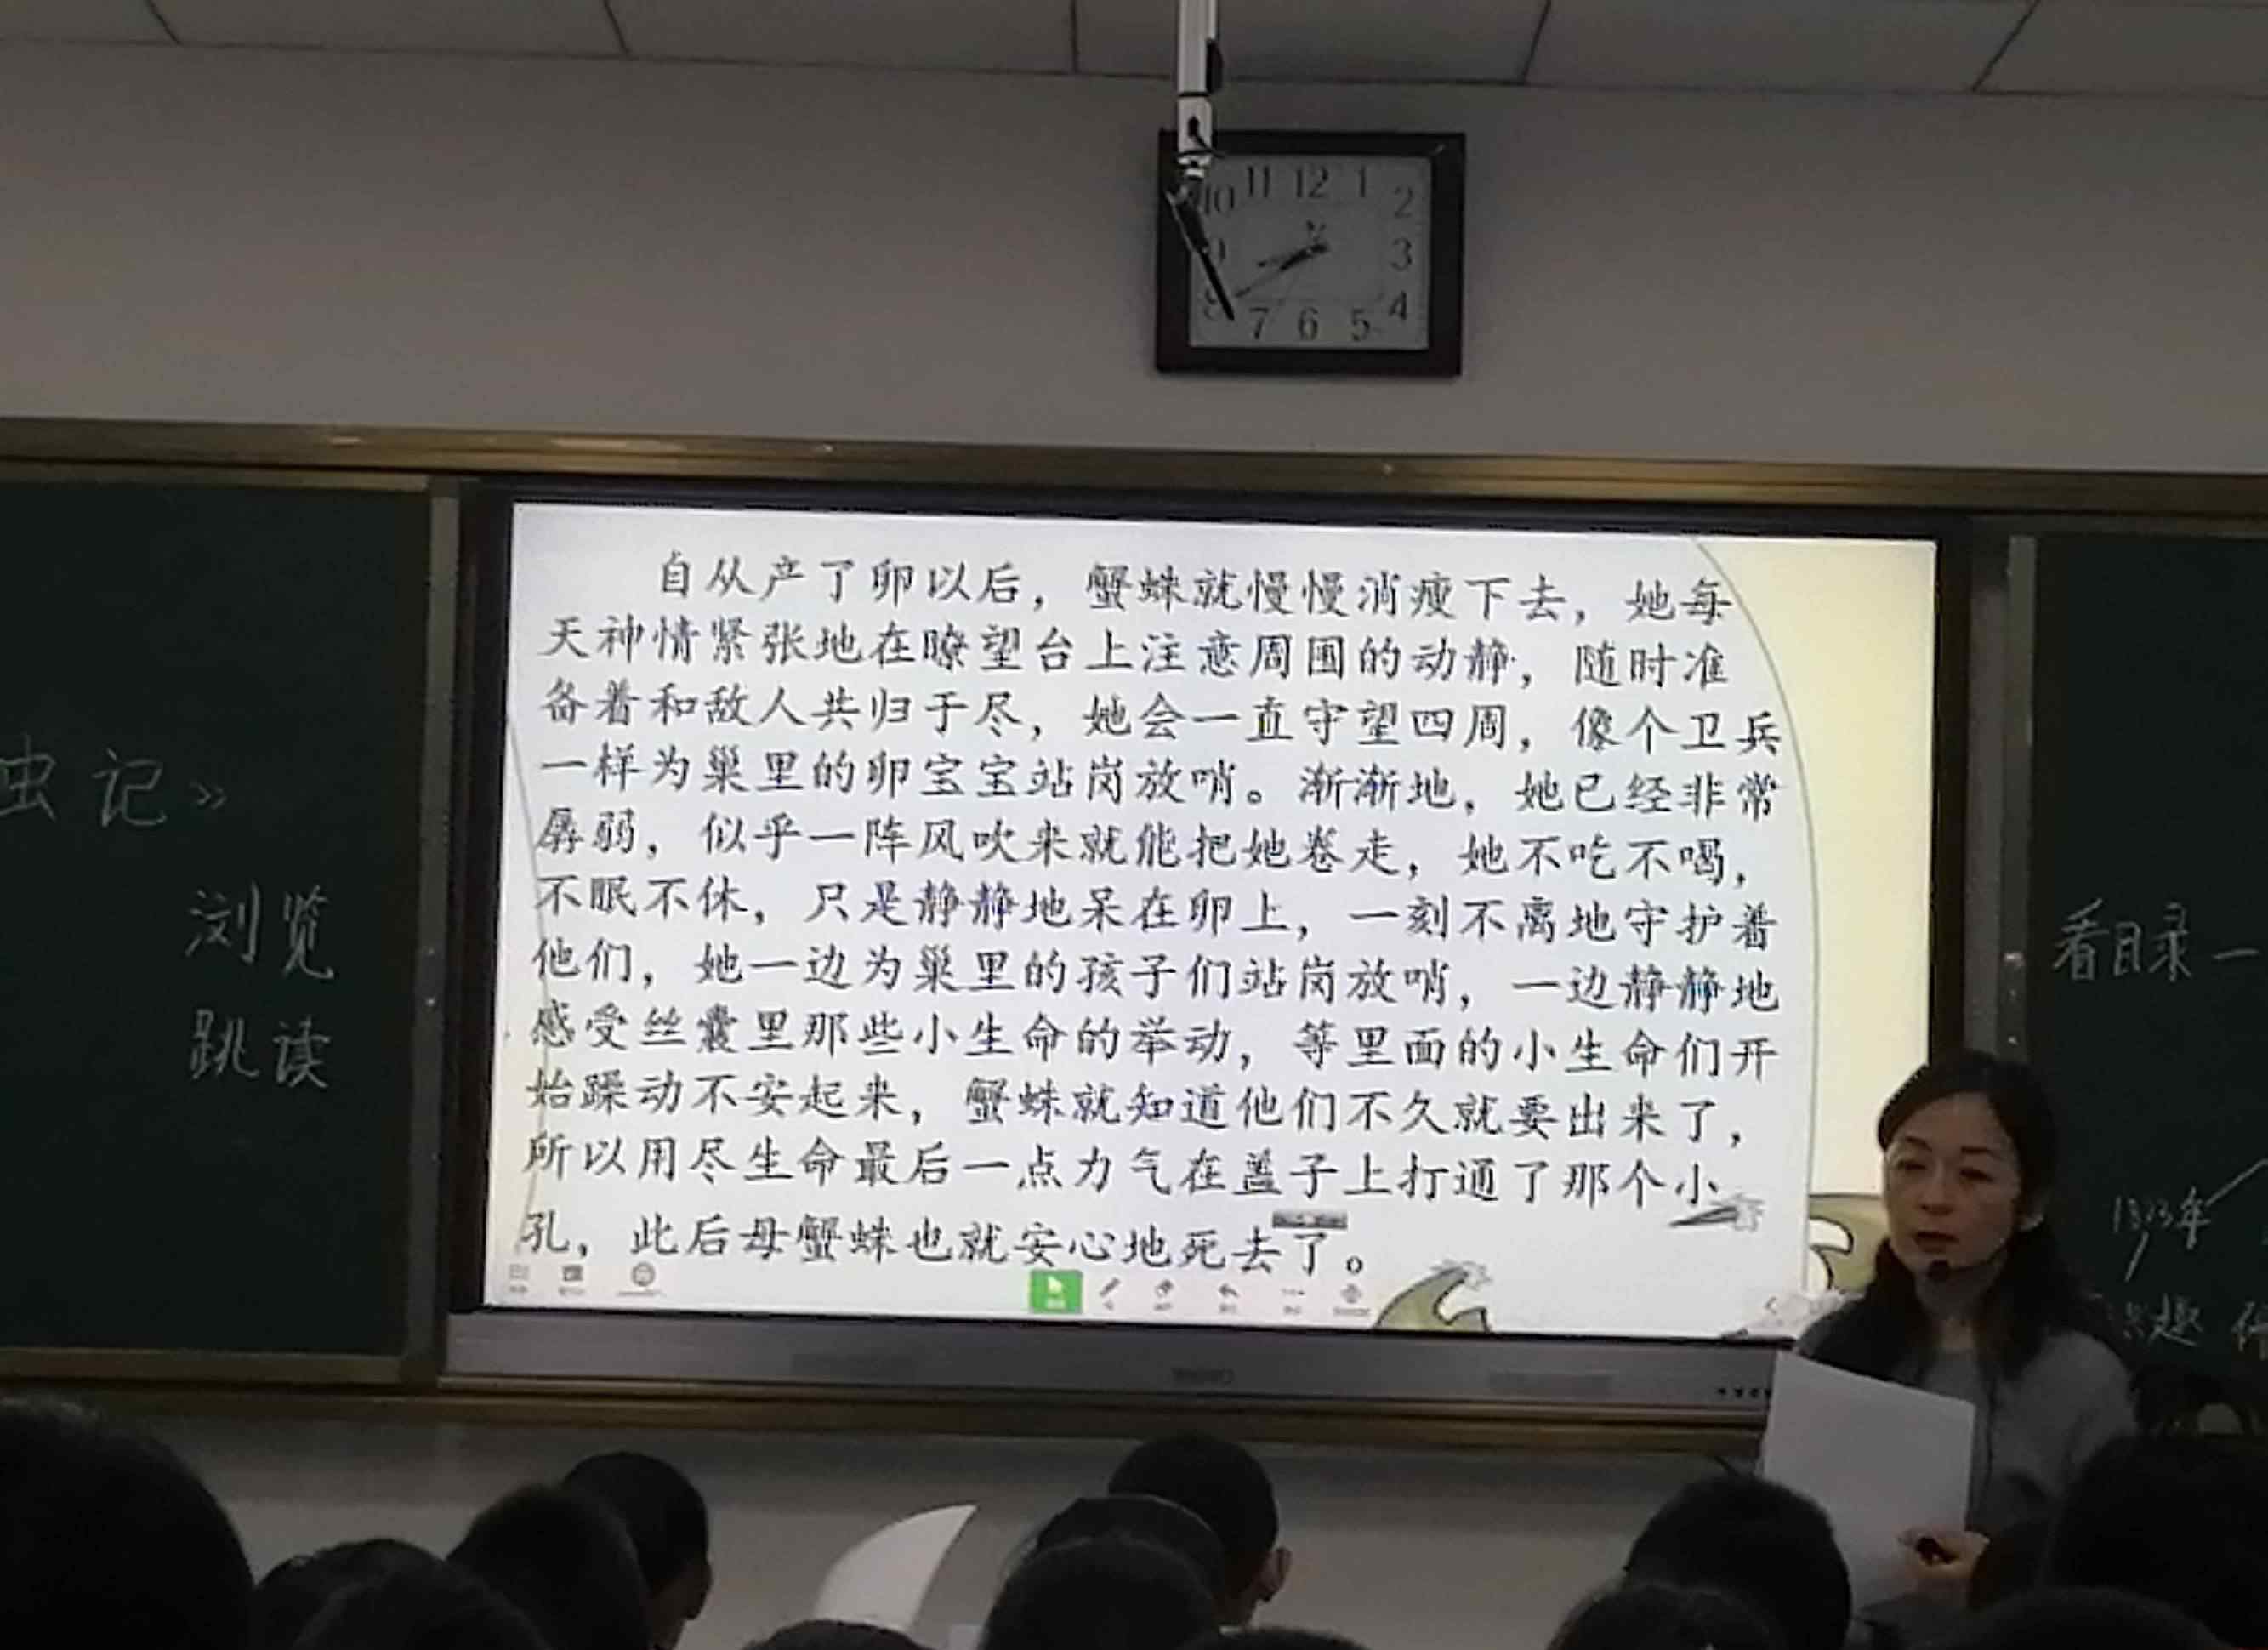 11 12 1
10 2
9 3
8 4
7 6 5
自从产了卵以后，蟹蛛就慢慢消瘦下去，她每
天神情紧张地在瞭望台上注意周围的动静，随时准
备着和敌人共归于尽，她会一直守望四周，像个卫兵
一样为巢里的卵宝宝站岗放哨。渐渐地，她已经非常
孱弱，似乎一阵风吹来就能把她卷走，她不吃不喝，
不眠不休，只是静静地呆在卵上，一刻不离地守护着
他们，她一边为巢里的孩子们站岗放哨，一边静静地
感受丝囊里那些小生命的举动，等里面的小生命们开
始躁动不安起来，蟹蛛就知道他们不久就要出来了，
所以用尽生命最后一点力气在盖子上打通了那个小
孔，此后母蟹蛛也就安心地死去了。
虫记》
浏览
跳读
看目录一
1823年
兴趣